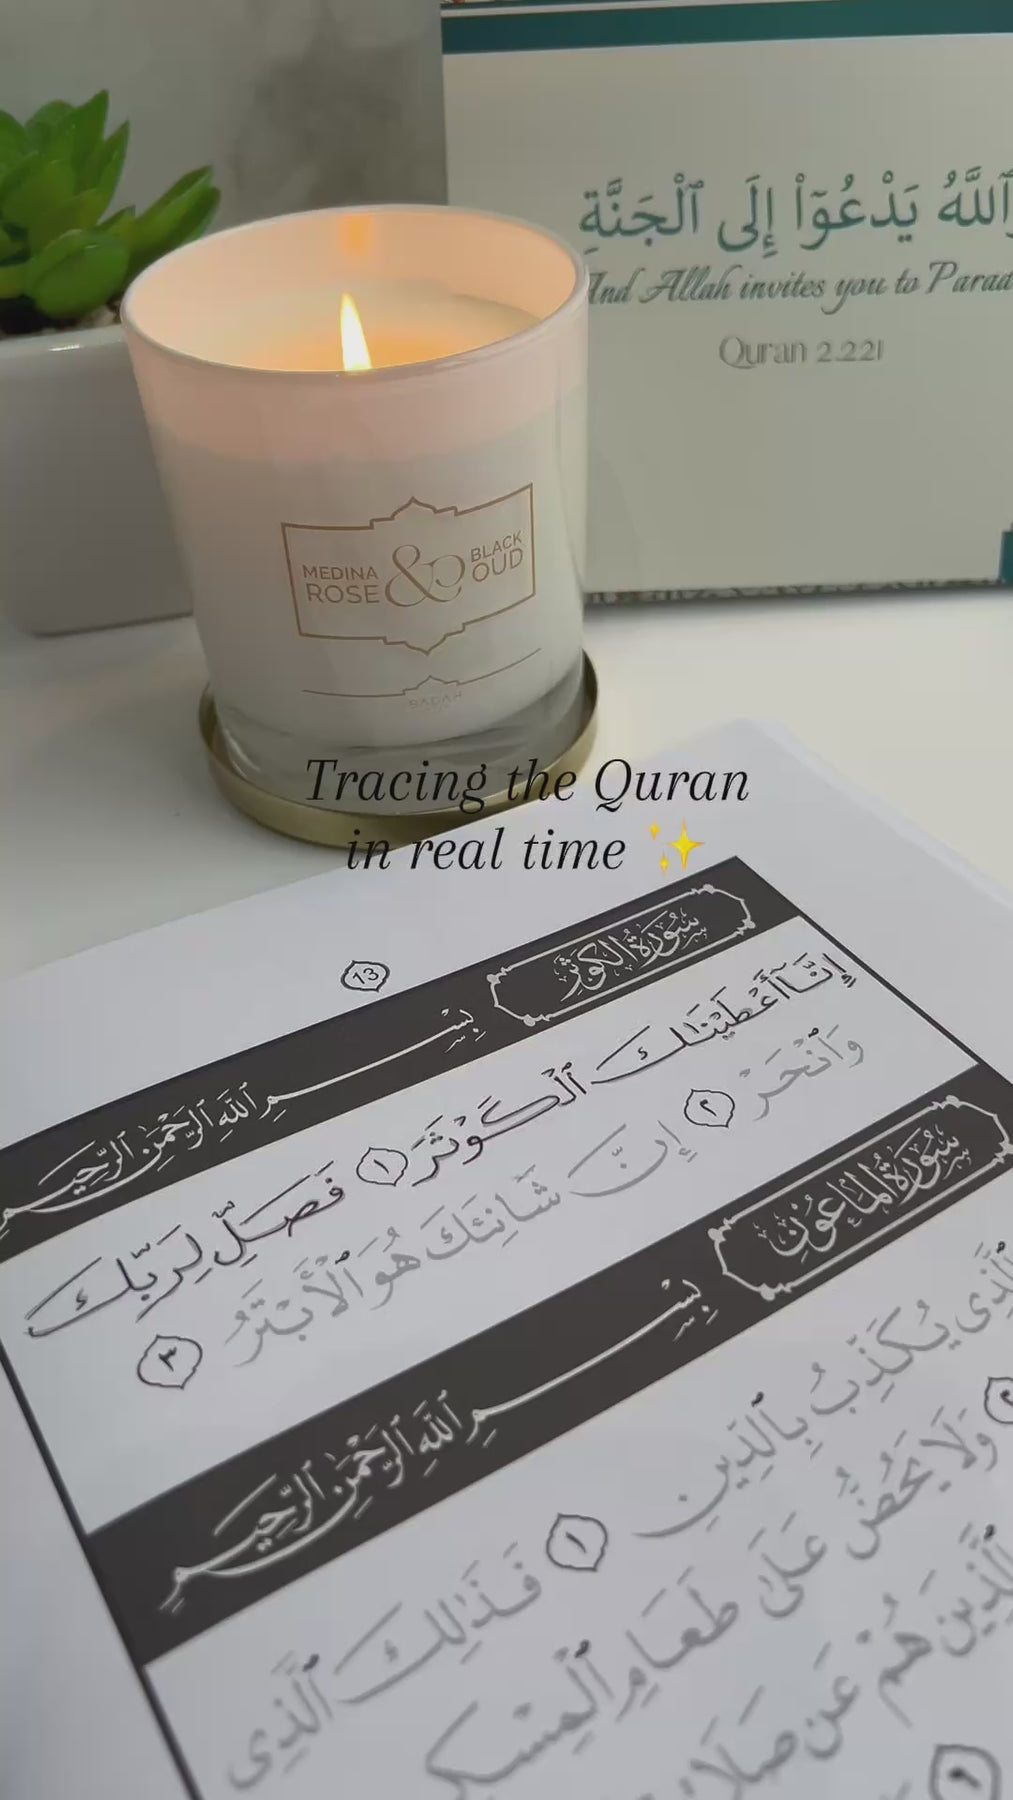 ٱللَّهُ يَدْعُوٓا۟ إِلَى ٱلْجَنَّةِ
And Allah invites you to
Quran 2.221
MEDINA ROSE & BLACK OUD
SADAH
Tracing the Quran
in real time ✨
13
سُورَةُ الكَوْثَرِ
بِسْمِ اللَّهِ الرَّحْمَٰنِ الرَّحِيمِ
إِنَّآ أَعْطَيْنَـٰكَ ٱلْكَوْثَرَ ١ فَصَلِّ لِرَبِّكَ
وَٱنْحَرْ ٢ إِنَّ شَانِئَكَ هُوَ ٱلْأَبْتَرُ ٣
سُورَةُ المَاعُونِ
بِسْمِ اللَّهِ الرَّحْمَٰنِ الرَّحِيمِ
ٱلَّذِى يُكَذِّبُ بِٱلدِّينِ ١ فَذَٰلِكَ ٱلَّذِى
وَلَا يَحُضُّ عَلَىٰ طَعَامِ
ٱلَّذِينَ هُمْ عَن